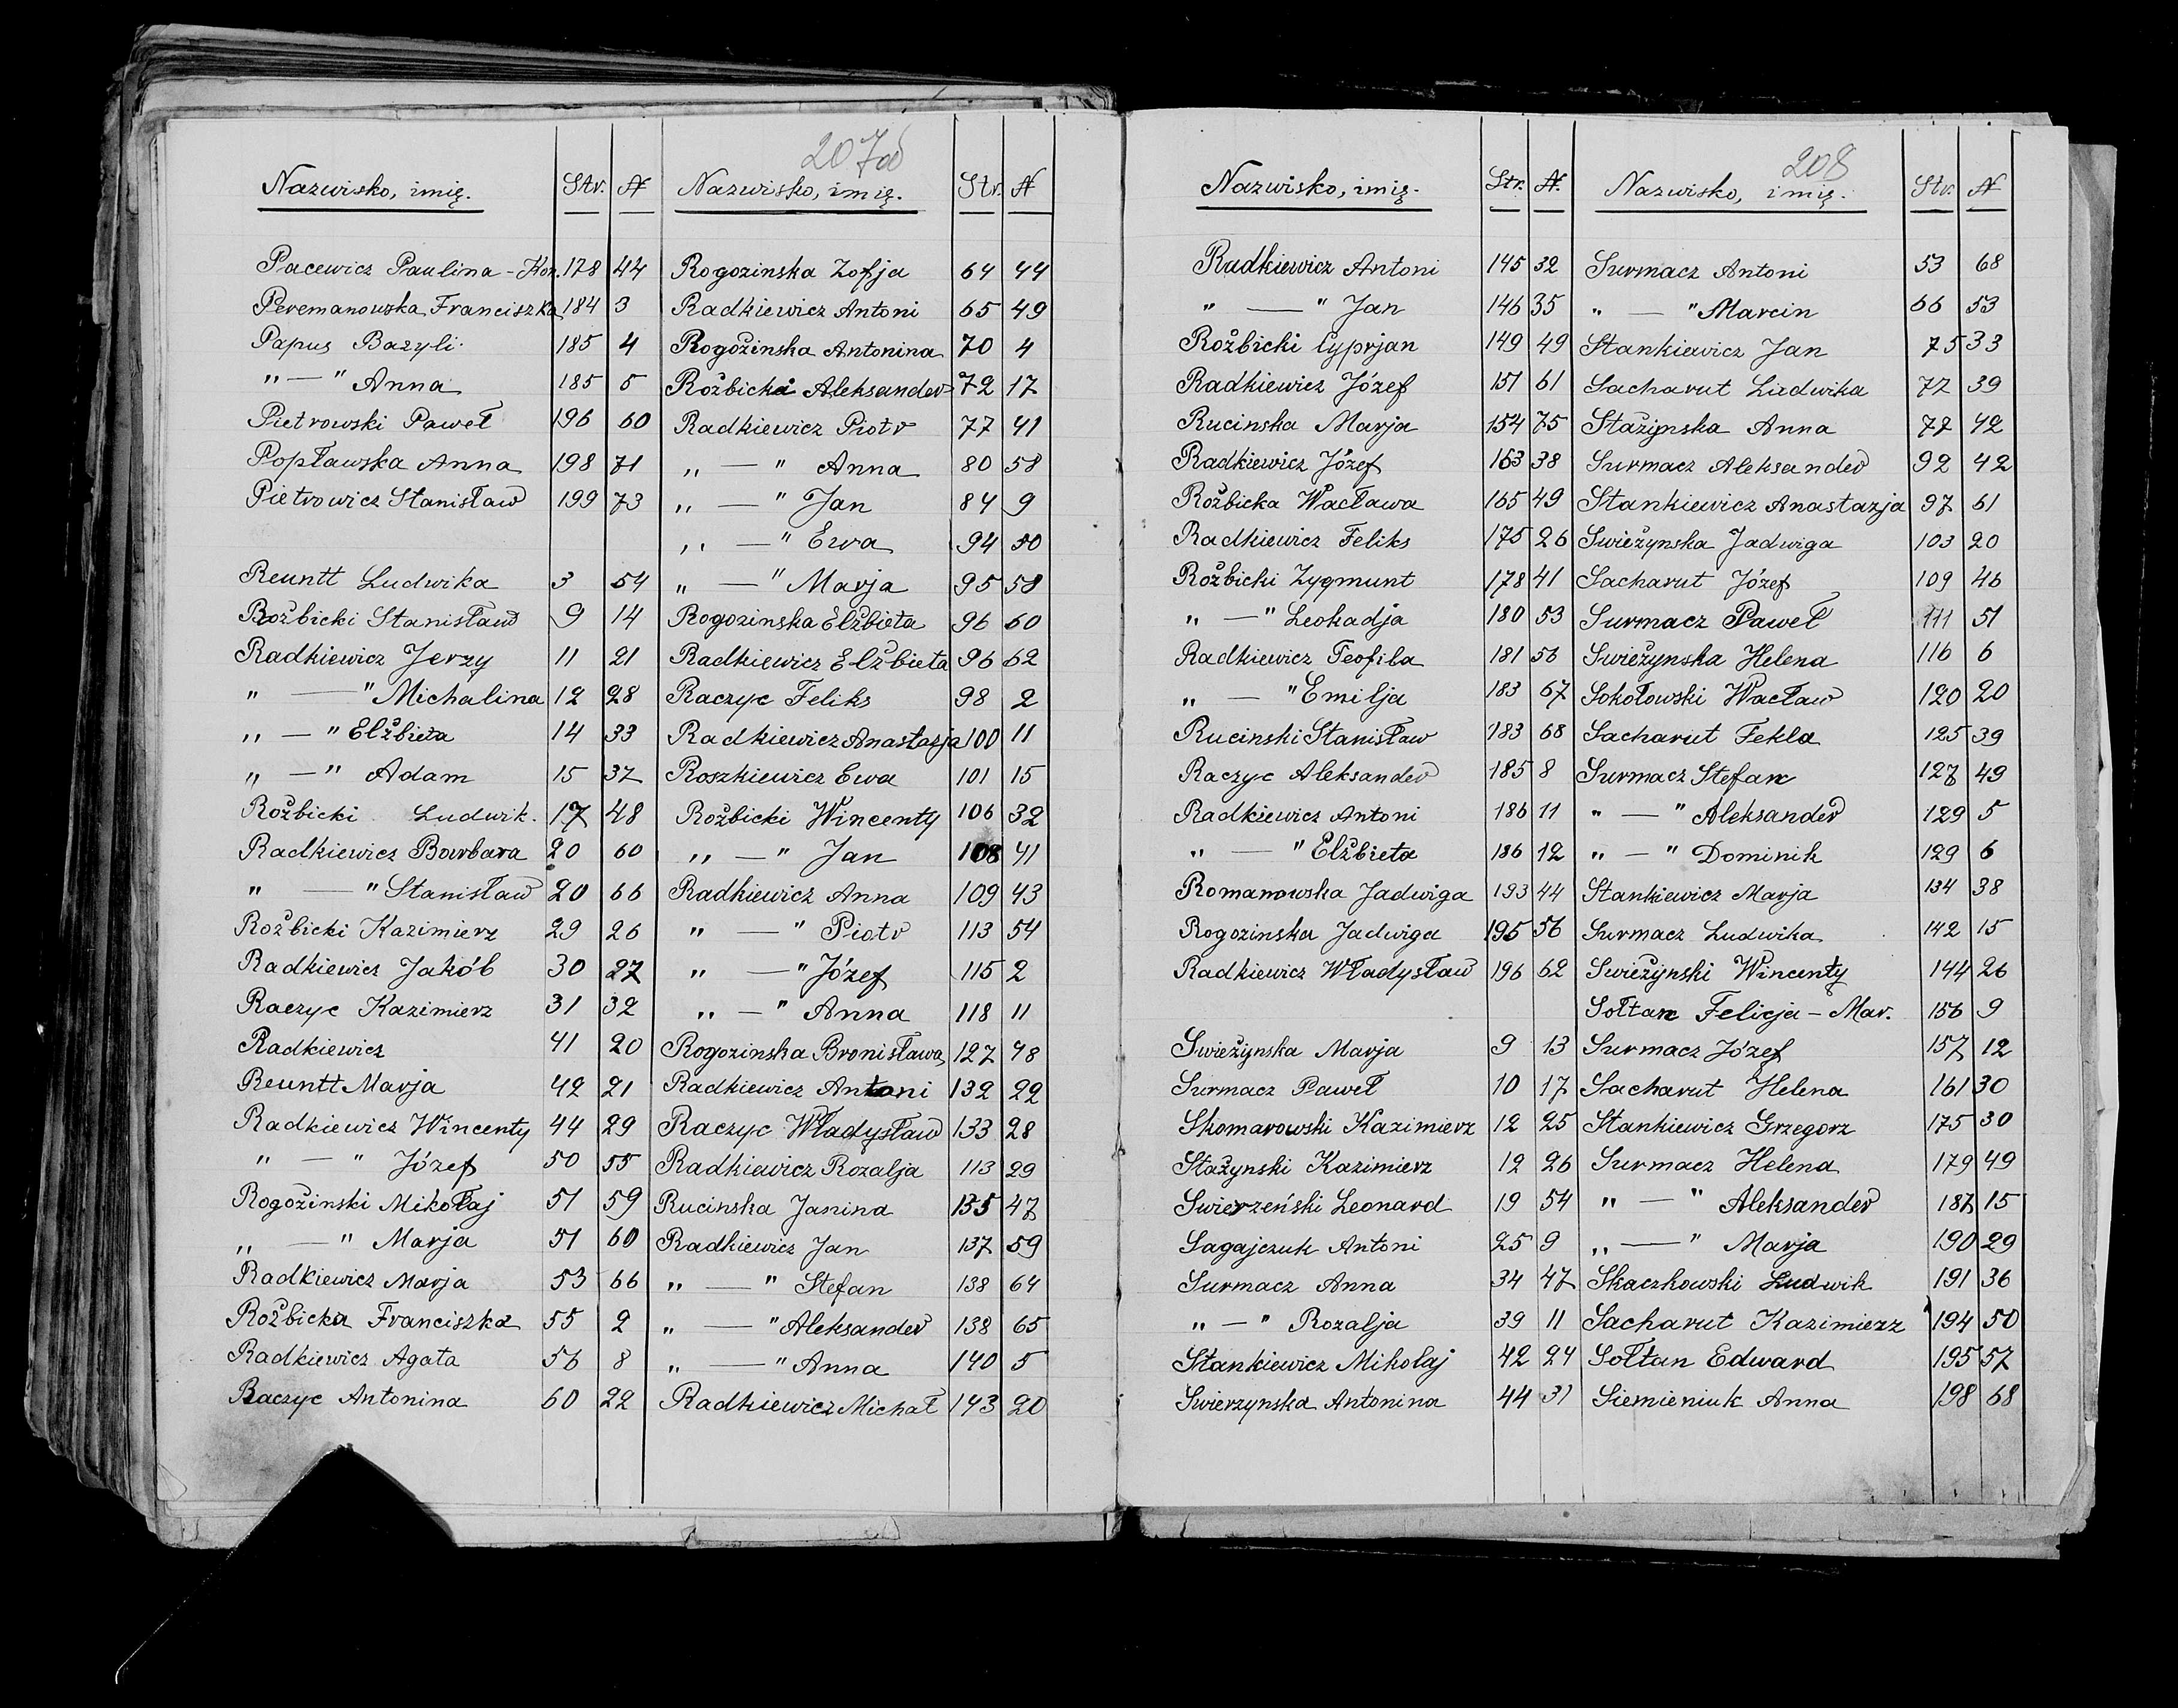 207об
Nazwisko, imię. Str. №
Pacewicz Paulina-Kon. 178 44
Peremanowska Franciszka 184 3
Papus Bazyli 185 4
„ — " Anna 185 5
Pietrowski Paweł 196 60
Popławska Anna 198 71
Pietrowicz Stanisław 199 73
Reuntt Ludwika 3 54
Rożbicki Stanisław 9 14
Radkiewicz Jerzy 11 21
„ — " Michalina 12 28
„ — " Elżbieta 14 33
„ — " Adam 15 37
Rożbicki Ludwik. 17 48
Radkiewicz Barbara 20 60
„ — " Stanisław 20 66
Rożbicki Kazimierz 29 26
Radkiewicz Jakób 30 27
Raczyc Kazimierz 31 32
Radkiewicz 41 20
Reuntt Marja 42 21
Radkiewicz Wincenty 44 29
„ — " Józef 50 55
Rogożinski Mikołaj 51 59
„ — " Marja 51 60
Radkiewicz Marja 53 66
Rożbicka Franciszka 55 2
Radkiewicz Agata 56 8
Raczyc Antonina 60 22
Nazwisko, imię. Str. №
Rogozinska Zofja 64 44
Radkiewicz Antoni 65 49
Rogożinska Antonina 70 4
Rożbicki Aleksander 72 17
Radkiewicz Piotr 77 41
„ — " Anna 80 58
„ — " Jan 84 9
„ — " Ewa 94 50
„ — " Marja 95 58
Rogozinska Elżbieta 96 60
Radkiewicz Elżbieta 96 62
Raczyc Feliks 98 2
Radkiewicz Anastazja 100 11
Roszkiewicz Ewa 101 15
Rożbicki Wincenty 106 32
„ — " Jan 108 41
Radkiewicz Anna 109 43
„ — " Piotr 113 54
„ — " Józef 115 2
„ — " Anna 118 11
Rogozinska Bronisława 127 48
Radkiewicz Antoni 132 22
Raczyc Władysław 133 28
Radkiewicz Rozalja 113 29
Rucinska Janina 135 47
Radkiewicz Jan 137 59
„ — " Stefan 138 64
„ — " Aleksander 138 65
„ — " Anna 140 5
Radkiewicz Michał 143 20
208
Nazwisko, imię. Str. №.
Radkiewicz Antoni 145 32
„ — " Jan 146 35
Rożbicki Cyprjan 149 49
Radkiewicz Józef 151 61
Rucinska Marja 154 75
Radkiewicz Józef 163 38
Rożbicka Wacława 165 49
Radkiewicz Feliks 175 26
Rożbicki Zygmunt 178 41
„ — " Leokadja 180 53
Radkiewicz Teofila 181 56
„ — " Emilja 183 67
Rucinski Stanisław 183 68
Raczyc Aleksander 185 8
Radkiewicz Antoni 186 11
„ — " Elżbieta 186 12
Romanowska Jadwiga 193 44
Rogozinska Jadwiga 195 56
Radkiewicz Władysław 196 62
Swieżynska Marja 9 13
Surmacz Paweł 10 17
Skomarowski Kazimierz 12 25
Stażynski Kazimierz 12 26
Swierzeński Leonard 19 54
Sagajczuk Antoni 25 9
Surmacz Anna 34 47
„ — " Rozalja 39 11
Stankiewicz Mikołaj 42 24
Swierzynska Antonina 44 31
Nazwisko, imię. Str. №
Surmacz Antoni 53 68
„ — " Marcin 66 53
Stankiewicz Jan 75 33
Sacharut Ludwika 77 39
Stażynska Anna 77 42
Surmacz Aleksander 92 42
Stankiewicz Anastazja 97 61
Swieżynska Jadwiga 103 20
Sacharut Józef 109 46
Surmacz Paweł 111 51
Swieżynska Helena 116 6
Sokołowski Wacław 120 20
Sacharut Tekla 125 39
Surmacz Stefan 127 49
„ — " Aleksander 129 5
„ — " Dominik 129 6
Stankiewicz Marja 134 38
Surmacz Ludwika 142 15
Swieżynski Wincenty 144 26
Sołtan Felicja-Mar. 156 9
Surmacz Józef 157 12
Sacharut Helena 161 30
Stankiewicz Grzegorz 175 30
Surmacz Helena 179 49
„ — " Aleksander 187 15
„ — " Marja 190 29
Skaczkowski Ludwik 191 36
Sacharut Kazimierz 194 50
Sołtan Edward 195 57
Siemieniuk Anna 198 68